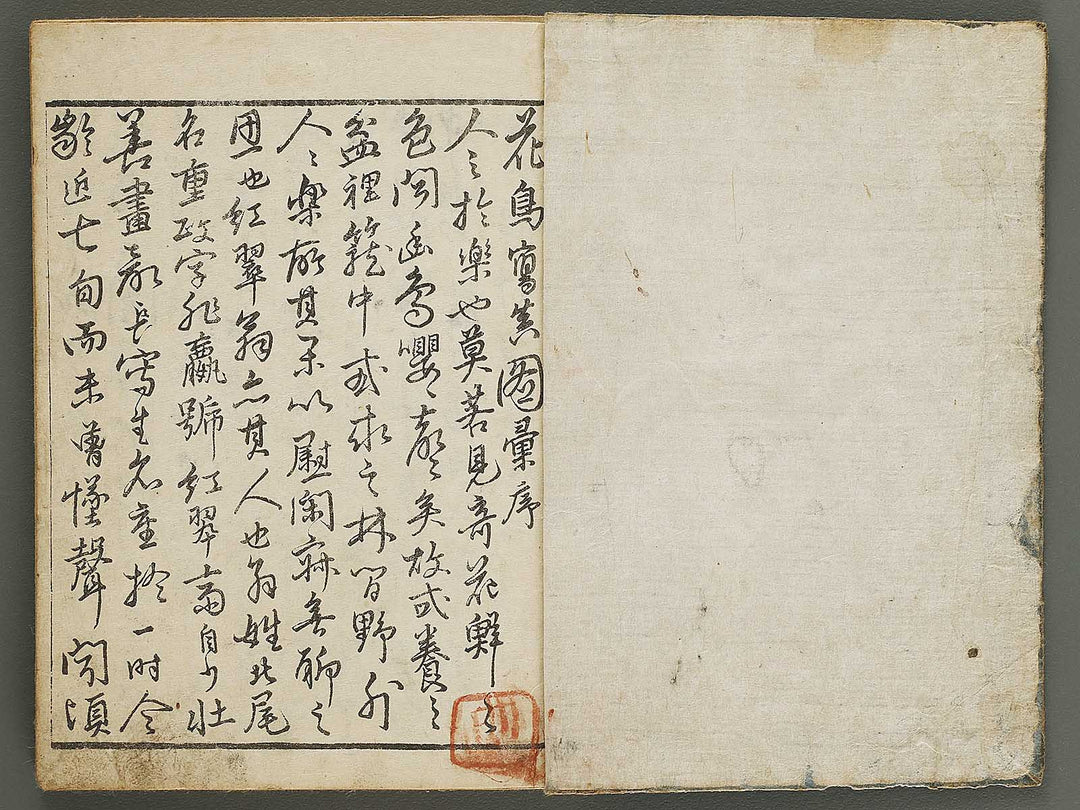 花鳥寫真圖彙序
人之於樂也莫若見奇花鮮之
色聞幽鳥嚶〻聲矣故或養之
盆裡籠中或求之林間野外
人〻樂所其業以慰閑寂無聊之
思也紅翠翁亦其人也翁姓北尾
名重政字非羸號紅翠齋自少壯
善畫最長寫生名重於一時今
齡近七旬而未曾懂聲聞頃